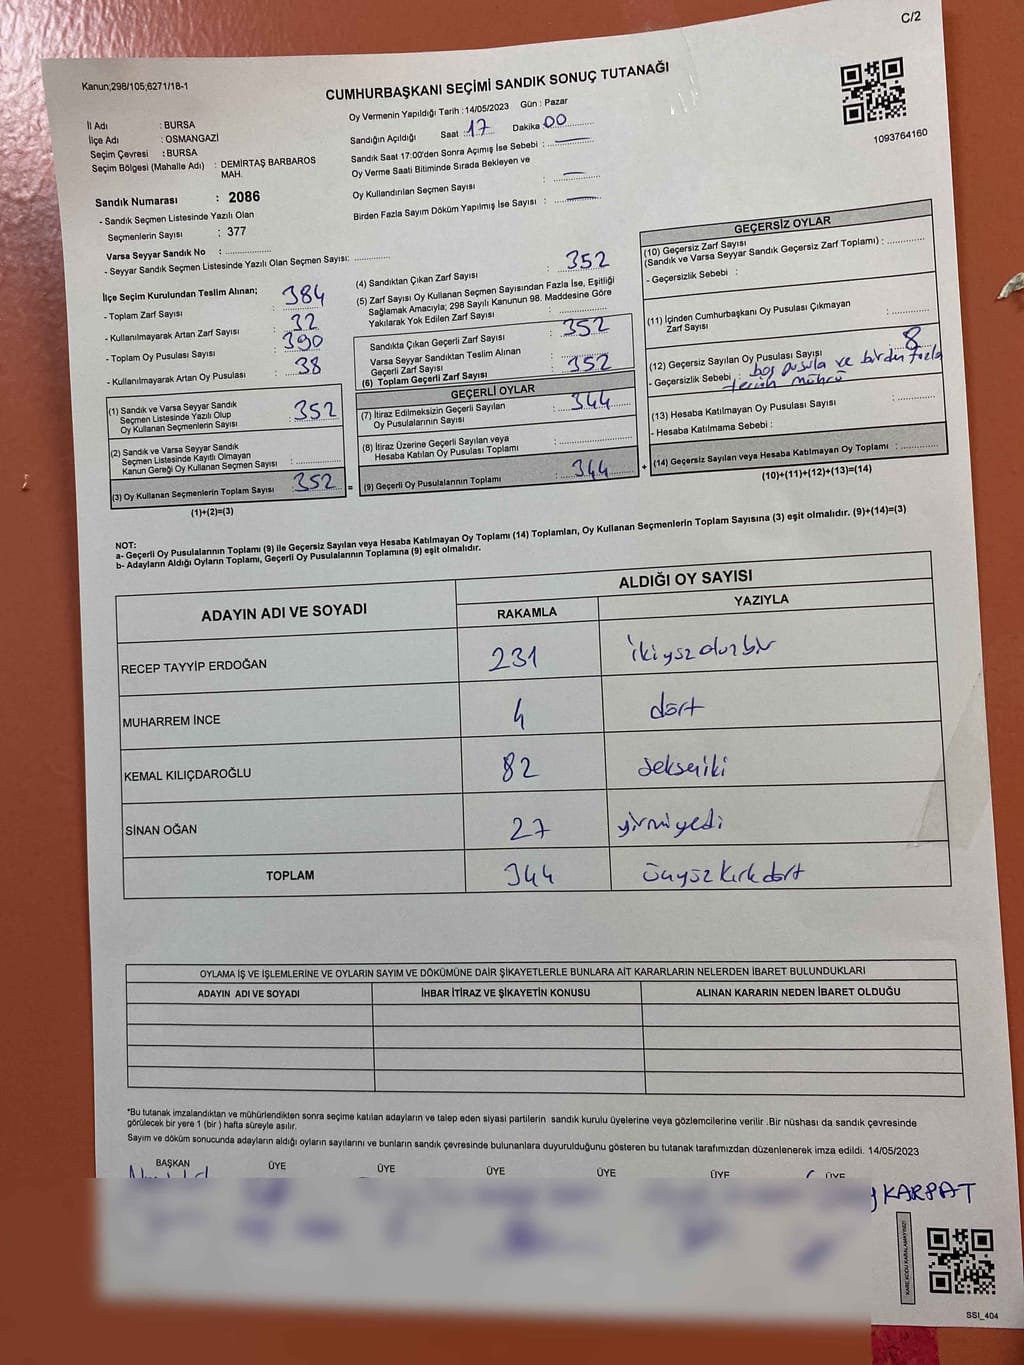 C/2
Kanun;298/105;6271/18-1
CUMHURBAŞKANI SEÇİMİ SANDIK SONUÇ TUTANAĞI
1093764160
İl Adı : BURSA
İlçe Adı : OSMANGAZİ
Seçim Çevresi : BURSA
Seçim Bölgesi (Mahalle Adı) : DEMİRTAŞ BARBAROS
MAH.
Sandık Numarası : 2086
- Sandık Seçmen Listesinde Yazılı Olan
Seçmenlerin Sayısı : 377
Varsa Seyyar Sandık No : ....................
- Seyyar Sandık Seçmen Listesinde Yazılı Olan Seçmen Sayısı: .............
Oy Vermenin Yapıldığı Tarih : 14/05/2023 Gün : Pazar
Sandığın Açıldığı Saat : 17 Dakika 00
Sandık Saat 17:00'den Sonra Açımış İse Sebebi : —
Oy Verme Saati Bitiminde Sırada Bekleyen ve
Oy Kullandırılan Seçmen Sayısı : —
Birden Fazla Sayım Döküm Yapılmış İse Sayısı : —
İlçe Seçim Kurulundan Teslim Alınan;
- Toplam Zarf Sayısı : 384
- Kullanılmayarak Artan Zarf Sayısı : 32
- Toplam Oy Pusulası Sayısı : 390
- Kullanılmayarak Artan Oy Pusulası : 38
(1) Sandık ve Varsa Seyyar Sandık
Seçmen Listesinde Yazılı Olup
Oy Kullanan Seçmenlerin Sayısı : 352
(2) Sandık ve Varsa Seyyar Sandık
Seçmen Listesinde Kayıtlı Olmayan
Kanun Gereği Oy Kullanan Seçmen Sayısı : .............
(3) Oy Kullanan Seçmenlerin Toplam Sayısı : 352 =
(1)+(2)=(3)
(4) Sandıktan Çıkan Zarf Sayısı : 352
(5) Zarf Sayısı Oy Kullanan Seçmen Sayısından Fazla İse, Eşitliği
Sağlamak Amacıyla; 298 Sayılı Kanunun 98. Maddesine Göre
Yakılarak Yok Edilen Zarf Sayısı : .............
Sandıkta Çıkan Geçerli Zarf Sayısı : 352
Varsa Seyyar Sandıktan Teslim Alınan
Geçerli Zarf Sayısı
(6) Toplam Geçerli Zarf Sayısı : 352
GEÇERLİ OYLAR
(7) İtiraz Edilmeksizin Geçerli Sayılan
Oy Pusulalarının Sayısı : 344
(8) İtiraz Üzerine Geçerli Sayılan veya
Hesaba Katılan Oy Pusulası Toplamı : .............
(9) Geçerli Oy Pusulalarının Toplamı : 344 +
GEÇERSİZ OYLAR
(10) Geçersiz Zarf Sayısı
(Sandık ve Varsa Seyyar Sandık Geçersiz Zarf Toplamı) : .............
- Geçersizlik Sebebi :
(11) İçinden Cumhurbaşkanı Oy Pusulası Çıkmayan
Zarf Sayısı : .............
(12) Geçersiz Sayılan Oy Pusulası Sayısı : 8
- Geçersizlik Sebebi : boş pusula ve birden fazla
tercih mührü
(13) Hesaba Katılmayan Oy Pusulası Sayısı : .............
- Hesaba Katılmama Sebebi :
(14) Geçersiz Sayılan veya Hesaba Katılmayan Oy Toplamı : .............
(10)+(11)+(12)+(13)=(14)
NOT:
a- Geçerli Oy Pusulalarının Toplamı (9) ile Geçersiz Sayılan veya Hesaba Katılmayan Oy Toplamı (14) Toplamları, Oy Kullanan Seçmenlerin Toplam Sayısına (3) eşit olmalıdır. (9)+(14)=(3)
b- Adayların Aldığı Oyların Toplamı, Geçerli Oy Pusulalarının Toplamına (9) eşit olmalıdır.
ADAYIN ADI VE SOYADI ALDIĞI OY SAYISI
RAKAMLA YAZIYLA
RECEP TAYYİP ERDOĞAN 231 ikiyüzotuzbir
MUHARREM İNCE 4 dört
KEMAL KILIÇDAROĞLU 82 sekseniki
SİNAN OĞAN 27 yirmiyedi
TOPLAM 344 üçyüzkırkdört
OYLAMA İŞ VE İŞLEMLERİNE VE OYLARIN SAYIM VE DÖKÜMÜNE DAİR ŞİKAYETLERLE BUNLARA AİT KARARLARIN NELERDEN İBARET BULUNDUKLARI
ADAYIN ADI VE SOYADI İHBAR İTİRAZ VE ŞİKAYETİN KONUSU ALINAN KARARIN NEDEN İBARET OLDUĞU
*Bu tutanak imzalandıktan ve mühürlendikten sonra seçime katılan adayların ve talep eden siyasi partilerin sandık kurulu üyelerine veya gözlemcilerine verilir .Bir nüshası da sandık çevresinde
görülecek bir yere 1 (bir ) hafta süreyle asılır.
Sayım ve döküm sonucunda adayların aldığı oyların sayılarını ve bunların sandık çevresinde bulunanlara duyurulduğunu gösteren bu tutanak tarafımızdan düzenlenerek imza edildi. 14/05/2023
BAŞKAN ÜYE ÜYE ÜYE ÜYE ÜYE ÜYE
KARPAT
KARE KODU KARALAMAYINIZ!
SSI_404